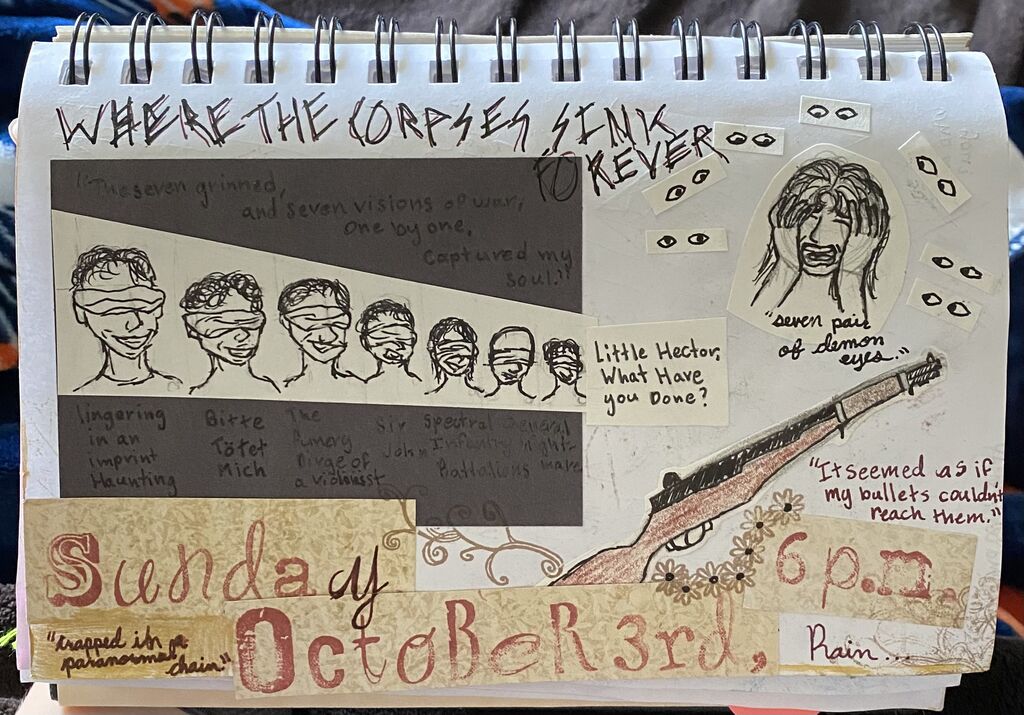 WHERE THE CORPSES SINK
FOREVER
"The seven grinned,
and seven visions of war,
One by one,
Captured my
soul."
"seven pair
of demon
eyes."
Little Hector,
What Have
you Done?
lingering
in an
imprint
Haunting
Bitte
Tötet
Mich
The
Dirge of
a violinist
Sir
John
Spectral
Infantry
Battalions
General
Night-
mare
"It seemed as if
my bullets couldn't
reach them."
Sunday
6 p.m.
OctoBeR 3rd,
"trapped in a
paranormal
chain"
Rain...